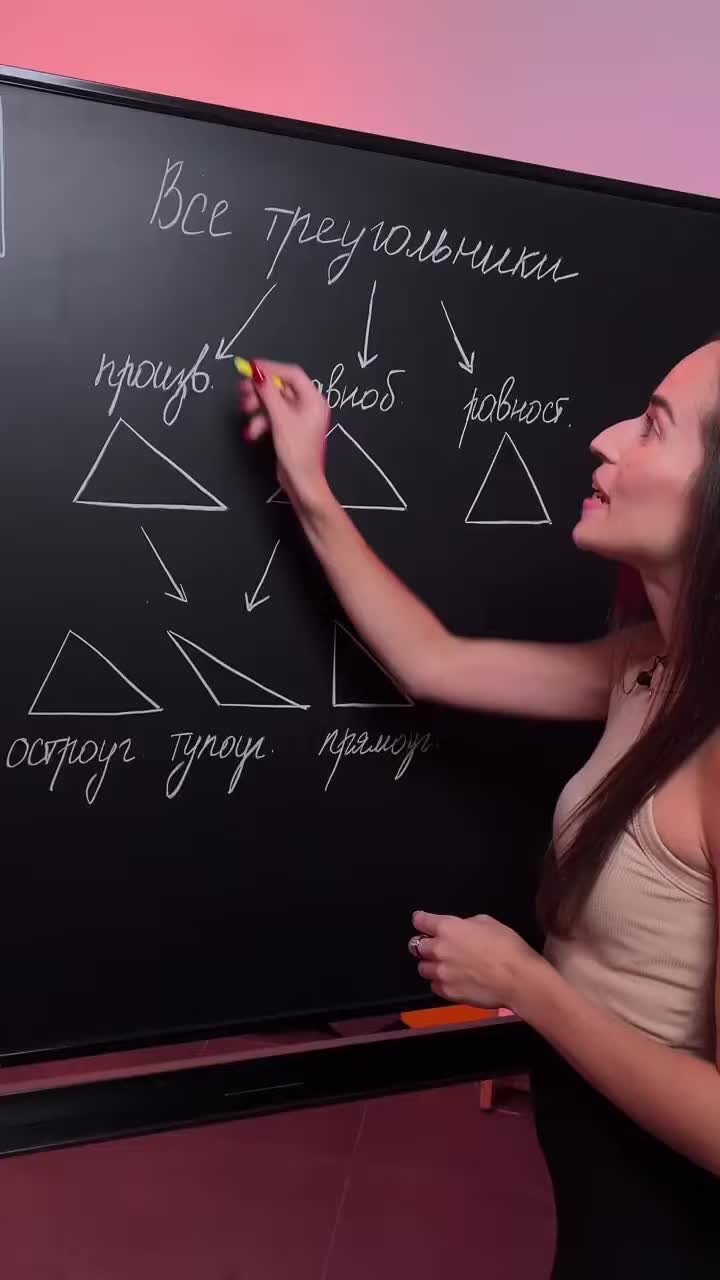 Все треугольники
произв. авноб. равност.
остроуг. тупоуг. прямоуг.